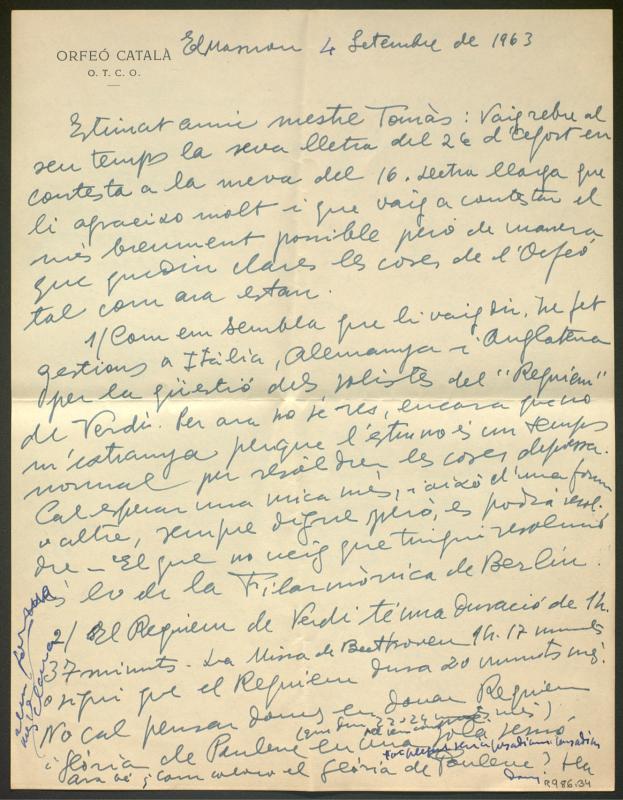 ORFEÓ CATALÀ
O. T. C. O.
El Masnou 4 Setembre de 1963
Estimat amic mestre Tomàs: Vaig rebre al
seu temps la seva lletra del 26 d'Agost en
contesta a la meva del 16. Lletra llarga que
li agraeixo molt i que vaig a contestar el
més breument possible però de manera
que quedin clares les coses de l'Orfeó
tal com ara estan.
1/ Com em sembla que li vaig dir, he fet
gestions a Itàlia, Alemanya i Anglaterra
per la qüestió dels solistes del "Requiem"
de Verdi. Per ara no sé res, encara que no
m'estranya perque l'estiu no és un temps
normal per resoldre les coses depressa.
Cal esperar una mica més, i això d'una forma
o altre, sempre digne però, es podrà resol-
dre - El que no veig que tingui resolució
és lo de la Filarmònica de Berlin.
2/ El Requiem de Verdi té una duració de 1h.
37 minuts. La Missa de Beethoven 1h. 17 minuts
o sigui que el Requiem dura 20 minuts més.
No cal pensar doncs en donar Requiem
i Glória de Poulenc en una sola sessió
Ara bé, ¿com veuen el Glória de Poulenc? Ha
R.986.34